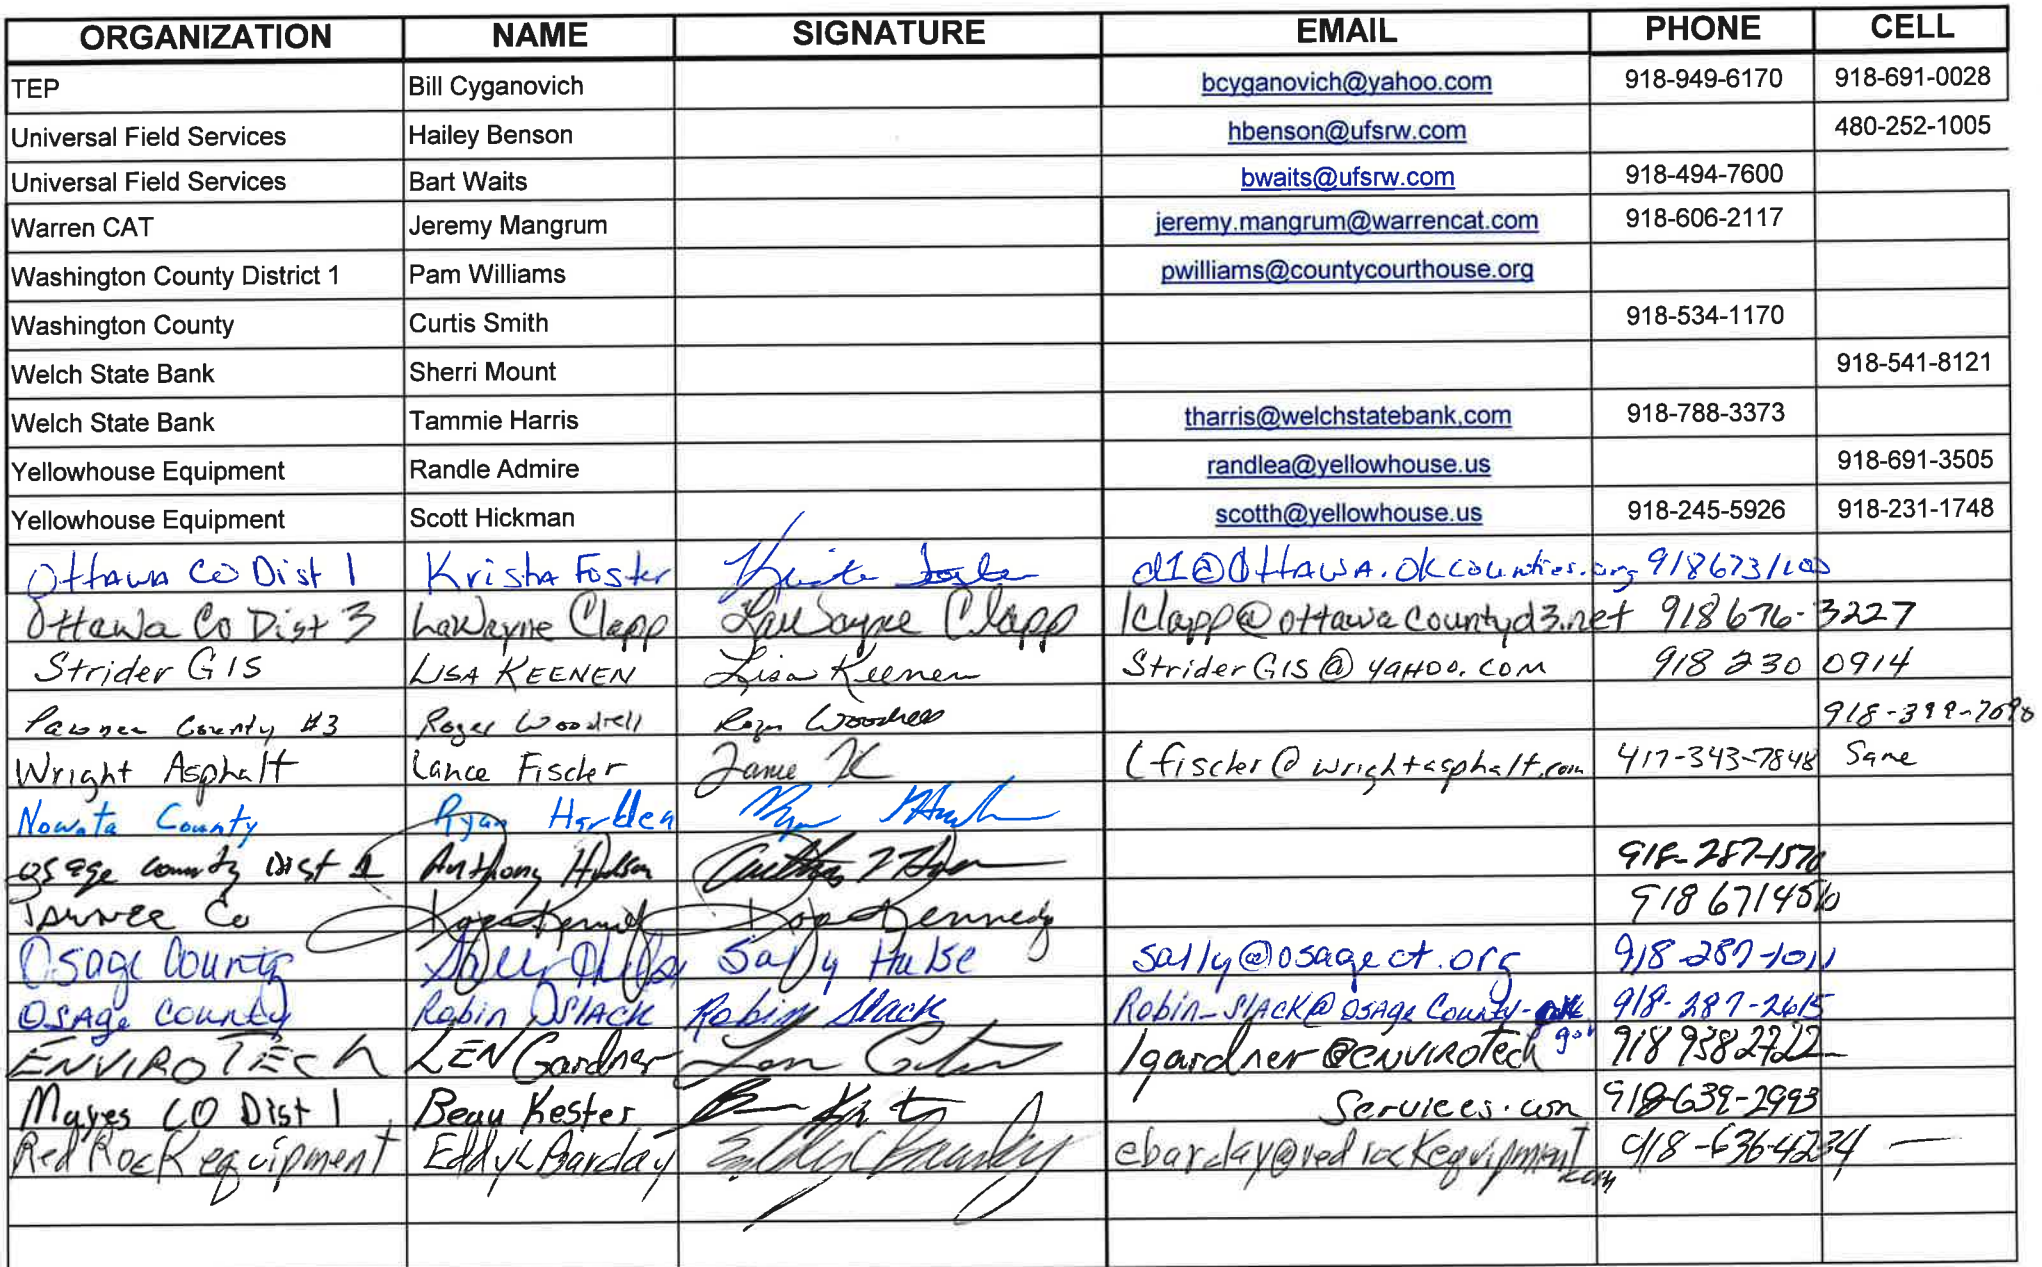 ORGANIZATION NAME SIGNATURE EMAIL PHONE CELL
TEP Bill Cyganovich bcyganovich@yahoo.com 918-949-6170 918-691-0028
Universal Field Services Hailey Benson hbenson@ufsrw.com 480-252-1005
Universal Field Services Bart Waits bwaits@ufsrw.com 918-494-7600
Warren CAT Jeremy Mangrum jeremy.mangrum@warrencat.com 918-606-2117
Washington County District 1 Pam Williams pwilliams@countycourthouse.org
Washington County Curtis Smith 918-534-1170
Welch State Bank Sherri Mount 918-541-8121
Welch State Bank Tammie Harris tharris@welchstatebank.com 918-788-3373
Yellowhouse Equipment Randle Admire randlea@yellowhouse.us 918-691-3505
Yellowhouse Equipment Scott Hickman scotth@yellowhouse.us 918-245-5926 918-231-1748
Ottawa Co Dist 1 Krista Foster d1@Ottawa.okcounties.org 9186731100
Ottawa Co Dist 3 LaWayne Clapp LaWayne Clapp lclapp@ottawacountyd3.net 918 676-3227
Strider GIS LISA KEENEN Lisa Keenen StriderGIS@yaHoo.com 918 230 0914
Pawnee County #3 Roger Woodrell Roger Woodrell
Wright Asphalt Lance Fischer lfischer@wrightasphalt.com 417-343-7848 Same
Nowata County Ryan
Osage County Dist 1 Anthony Hudson 918-287-1570
Pawnee Co Kennedy
Osage County Sally Hulse Sally Hulse sally@osagect.org 918-287-1011
Osage County Robin Slack Robin Slack Robin-Slack@OsageCounty- 918-287-2615
ENVIROTECH LEN Gardner lgardner@ENVIROTECh gov 918 938 2722
Mayes CO Dist 1 Beau Kester services.com 918-639-2993
Red Rock equipment Eddy Barclay ebarclay@redrockequipment 918-636-4234 —
.com